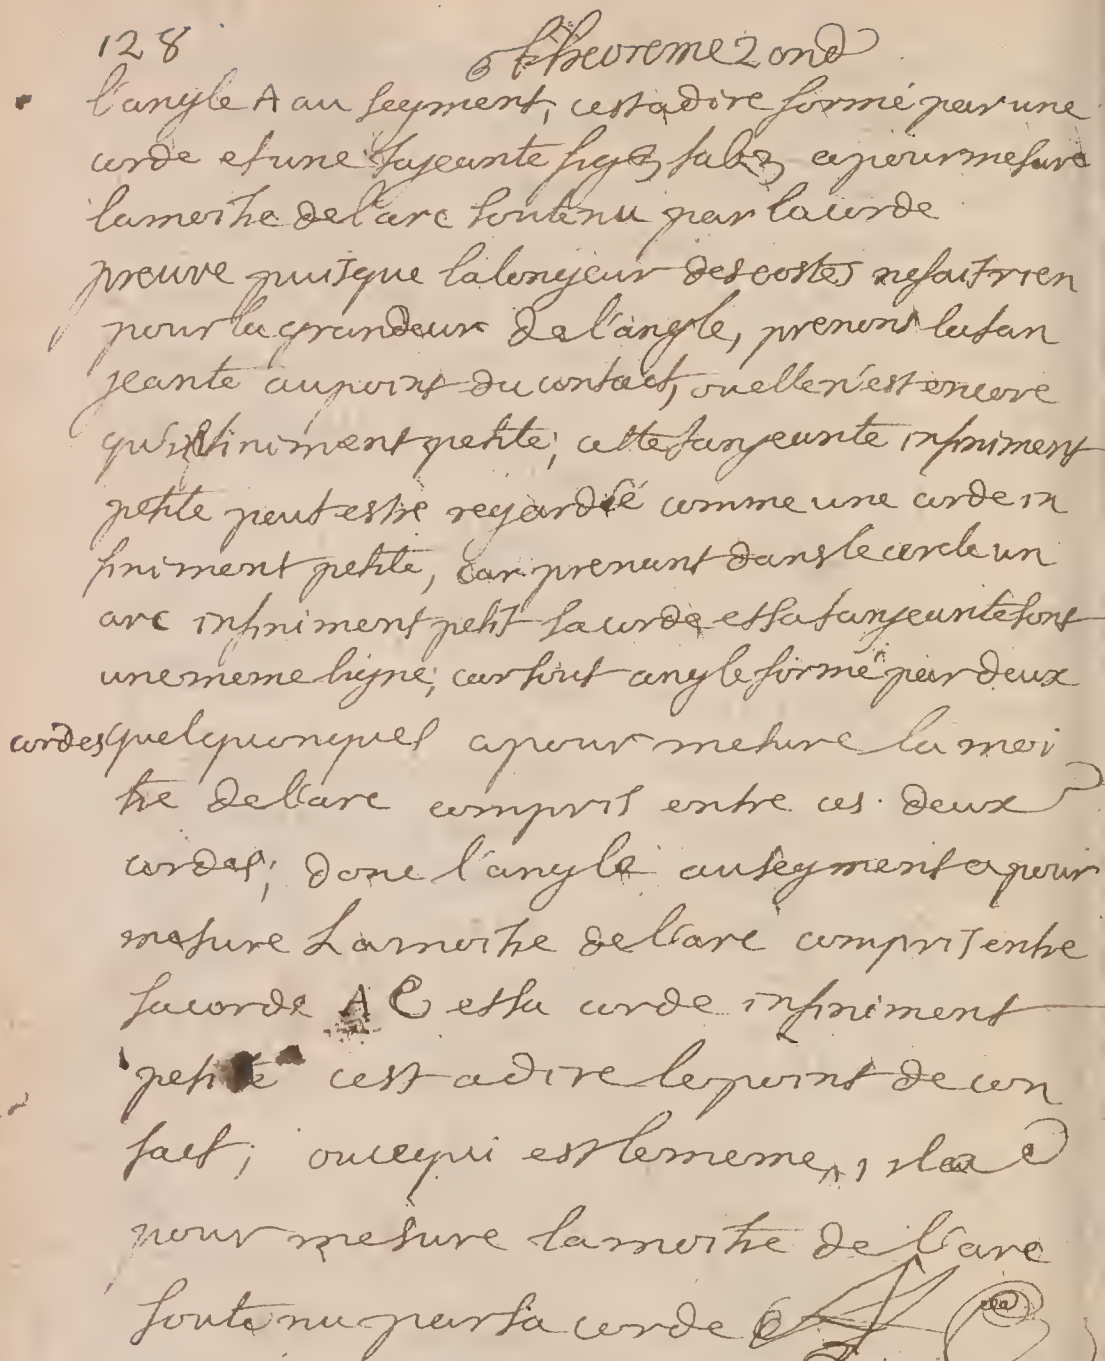 128 theoreme 2ond
l'angle A au segment, cest adire formé par une
corde et une tajeante fig 3 tab 3 a pour mesure
la moitie de l'arc soutenu par la corde
preuve puisque la longeur des costes ne fait rien
pour la grandeur de l'angle, prenons la tan
jeante au point du contact, ou elle n'est encore
qu'infiniment petite; cette tanjeante infiniment
petite peut estre regardée comme une corde in
finiment petite, car prenant dans le cercle un
arc infiniment petit sa corde et sa tanjeante sont
une meme ligne; car tout angle formé par deux
cordes quelquonques a pour mesure la moi
tie de l'arc compris entre ces deux
cordes; donc l'angle au segment a pour
mesure La moitie de l'arc compris entre
sa corde A C et sa corde infiniment
petite cest a dire le point de con
tact; ou ce qui est le meme, il a
pour mesure la moitie de l'arc
soutenu par sa corde